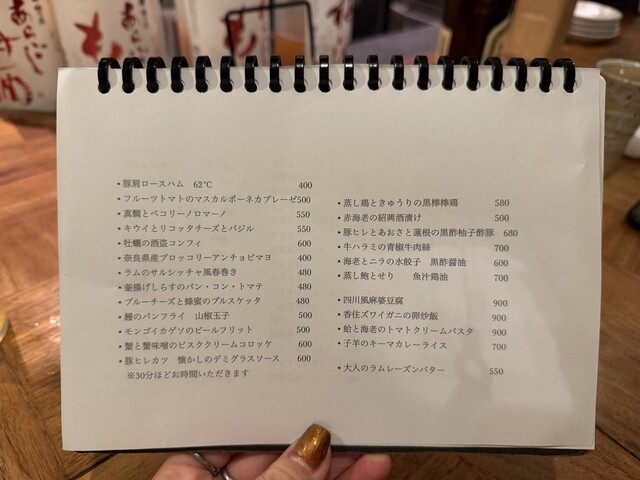 •豚肩ロースハム 62℃ 400
•フルーツトマトのマスカルポーネカプレーゼ500
•真鯛とペコリーノロマーノ 550
•キウイとリコッタチーズとバジル 550
•牡蠣の酒盗コンフィ 600
•奈良県産ブロッコリーアンチョビマヨ 400
•ラムのサルシッチャ風春巻き 480
•釜揚げしらすのパン・コン・トマテ 480
•ブルーチーズと蜂蜜のブルスケッタ 480
•鰻のパンフライ 山椒玉子 500
•モンゴイカゲソのビールフリット 500
•蟹と蟹味噌のビスククリームコロッケ 600
•豚ヒレカツ 懐かしのデミグラスソース 600
※30分ほどお時間いただきます
•蒸し鶏ときゅうりの黒棒棒鶏 580
•赤海老の紹興酒漬け 500
•豚ヒレとあおさと蓮根の黒酢柚子酢豚 680
•牛ハラミの青椒牛肉絲 700
•海老とニラの水餃子 黒酢醤油 600
•蒸し鮑とせり 魚汁鶏油 700
•四川風麻婆豆腐 900
•香住ズワイガニの卵炒飯 900
•蛤と海老のトマトクリームパスタ 900
•子羊のキーマカレーライス 700
•大人のラムレーズンバター 550